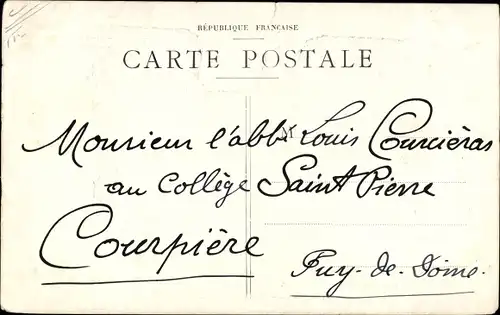 RÉPUBLIQUE FRANÇAISE
CARTE POSTALE
Monsieur l'abbé Louis Courciéras
au Collège Saint Pierre
Courpière
Puy-de-Dôme